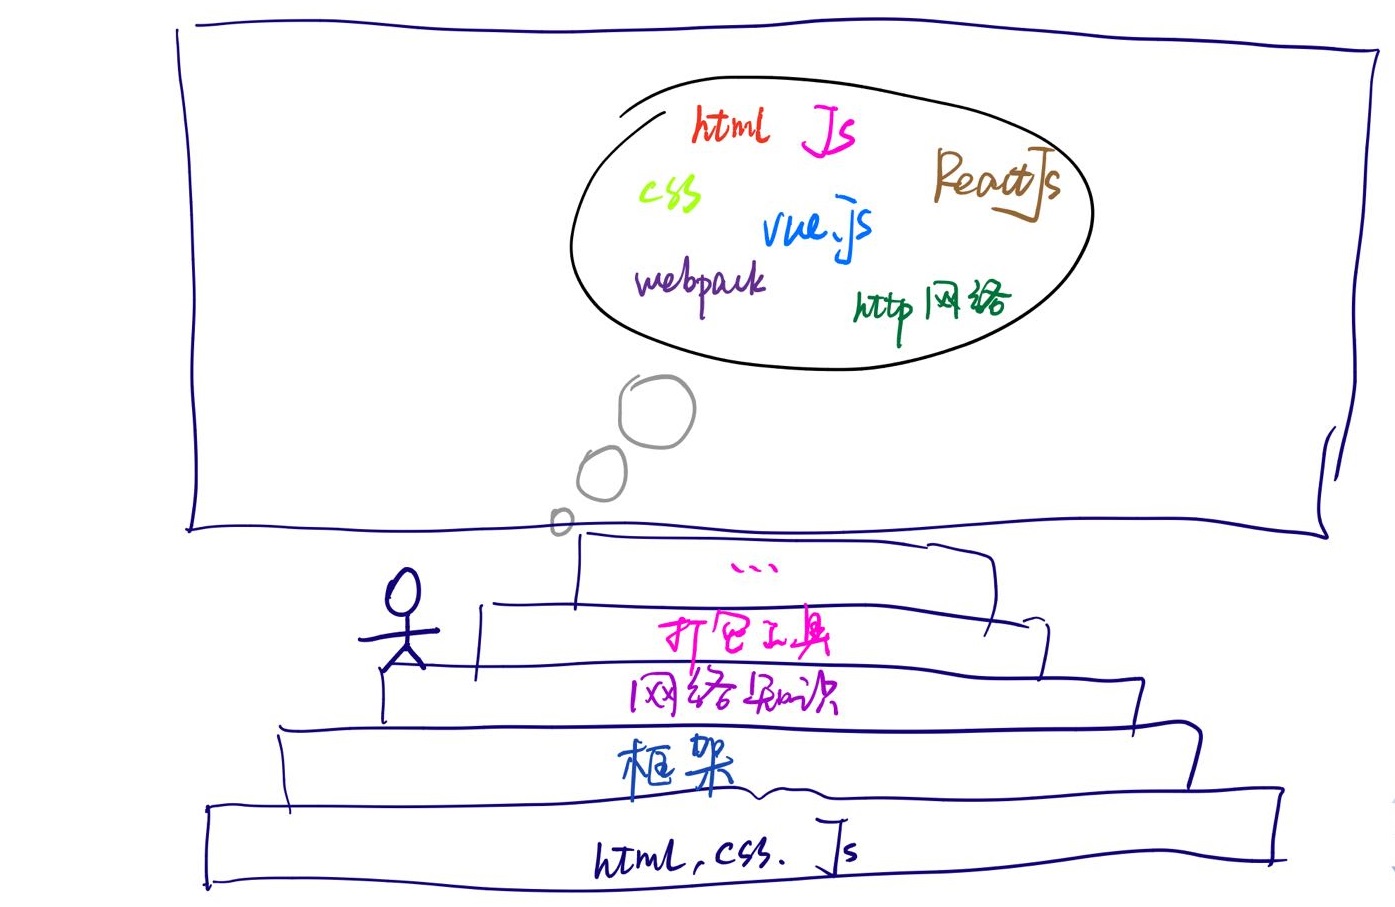 html Js
ReactJs
css
vue.js
webpack
http网络
...
打包工具
网络知识
框架
html, css. Js